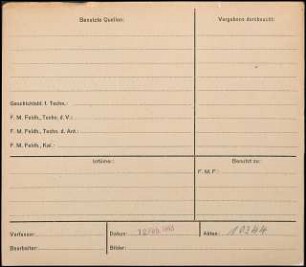 Benutzte Quellen: Vergebens durchsucht:
Geschichtsbl. f. Techn.:
F. M. Feldh., Techn. d. V.:
F. M. Feldh., Techn. d. Ant.:
F. M. Feldh., Kal.:
Irrtümer: Benutzt zu:
F. M. F.:
Verfasser: Datum: Akten: 10244
Bearbeiter: Bilder: